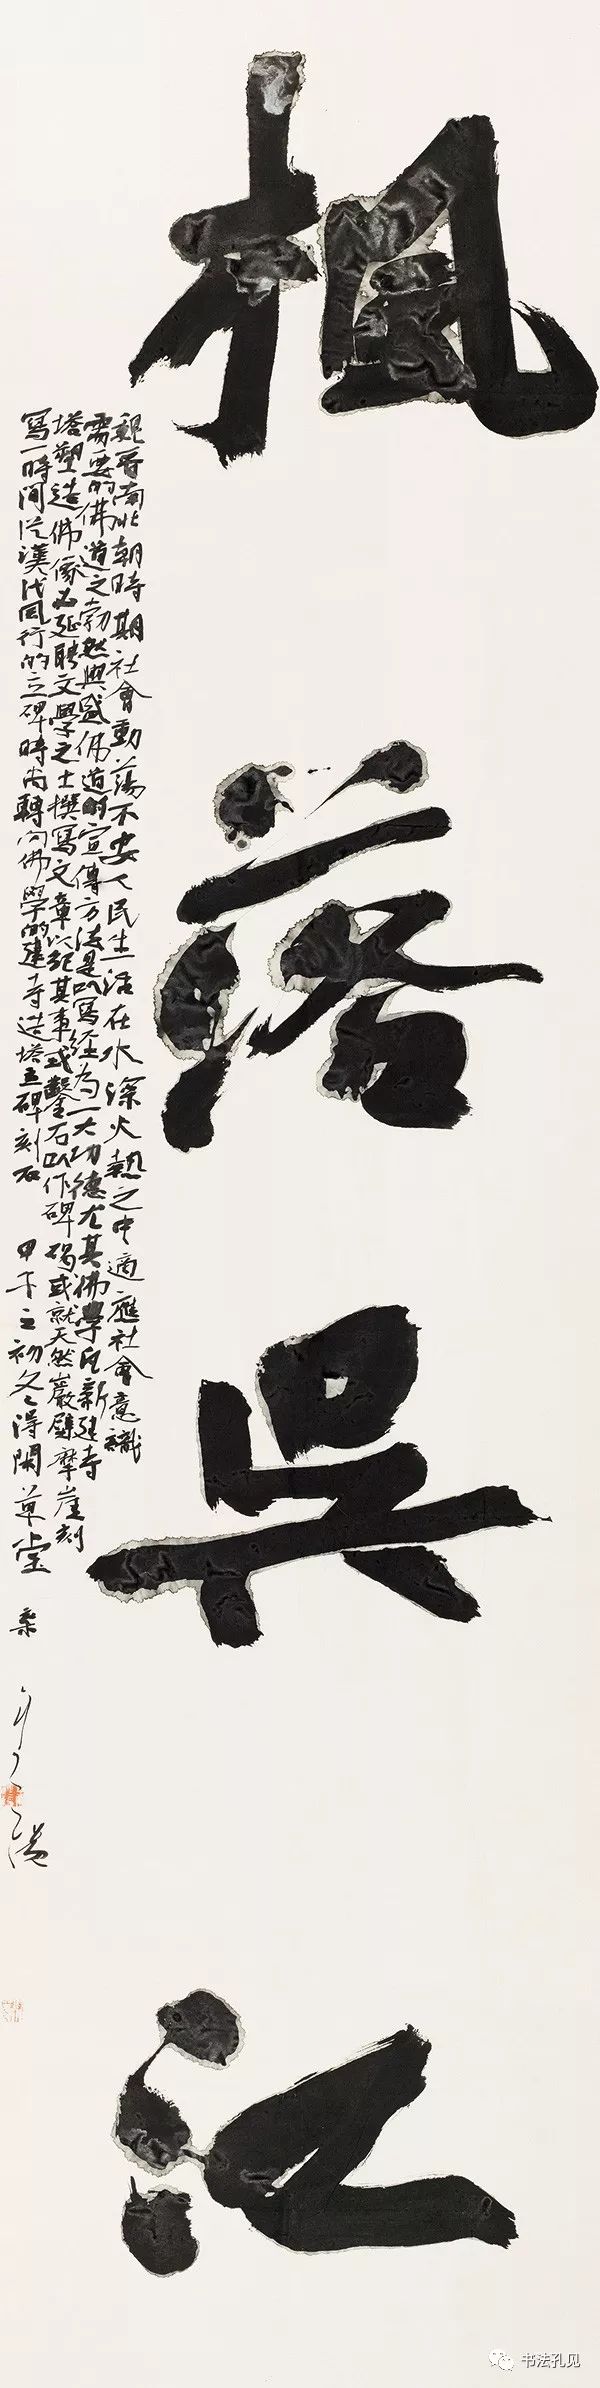 楓落吳江
魏晉南北朝時期社會動蕩不安人民生活在水深火熱之中適應社會意識
需要的佛道之勃然興盛佛道的宣傳方法是以寫經為一大功德尤其佛學凡新建寺
塔塑造佛像必延聘文學之士撰寫文章以記其事或鑿石以作碑碣或就天然巖壁摩崖刻
寫一時間從漢代風行的立碑時尚轉向佛學的建寺造塔立碑刻石 甲午之初冬得閑草堂
书法孔见